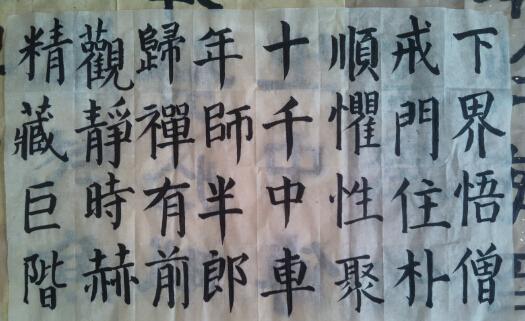 下界悟僧
戒門住朴
順懼性聚
十千中車
年師半郎
歸禪有前
觀靜時赫
精藏巨階